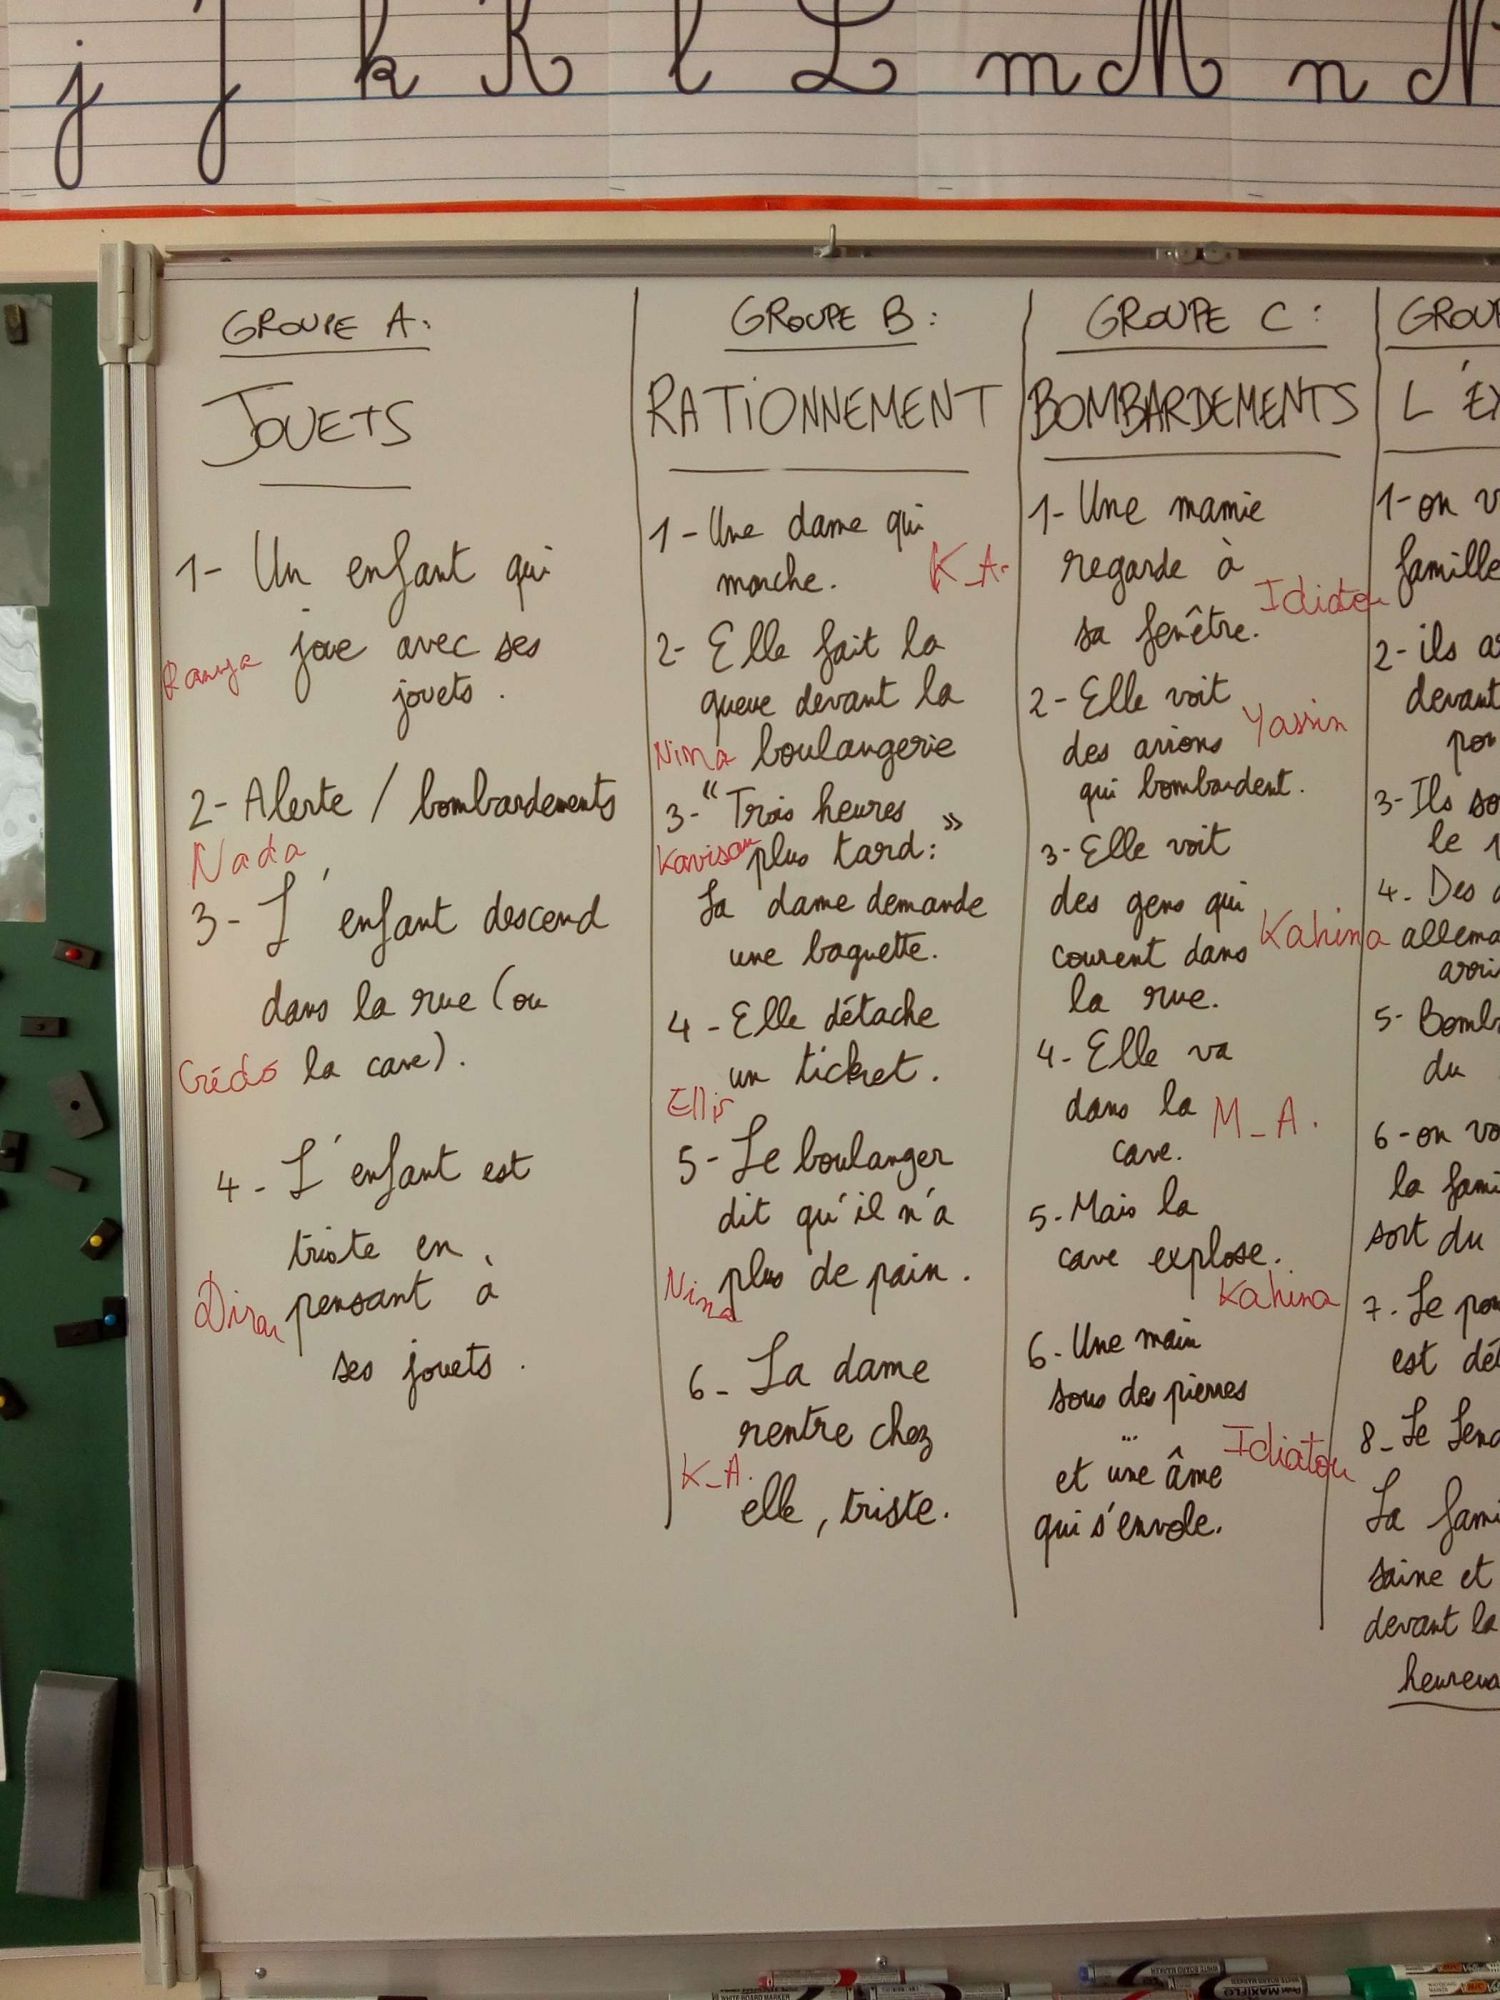 j J k K l L m M n N
GROUPE A:
JOUETS
1- Un enfant qui
joue avec ses
Ranya
jouets.
2- Alerte / bombardements
Nada
3- L'enfant descend
dans la rue (ou
Crédo la cave).
4- L'enfant est
triste en
pensant à
ses jouets.
GROUPE B:
RATIONNEMENT
1- Une dame qui
marche. K_A.
2- Elle fait la
queue devant la
Nima boulangerie
3- "Trois heures
Kavisan plus tard: »
La dame demande
une baguette.
4- Elle détache
un ticket.
Ellis
5- Le boulanger
dit qu'il n'a
Nima plus de pain.
6- La dame
rentre chez
K_A.
elle, triste.
GROUPE C:
BOMBARDEMENTS
1- Une mamie
regarde à
Idiatou
sa fenêtre.
2- Elle voit
des avions Yassin
qui bombardent.
3- Elle voit
des gens qui
courent dans Kahina
la rue.
4- Elle va
dans la M_A.
cave.
5- Mais la
cave explose.
Kahina
6- Une main
sous des pierres
...
Idiatou
et une âme
qui s'envole.
L'
1- on
famille
2- ils
devant
3- Ils
le
4. Des
5-
du
6- on
la
sort du
7. Le
est
8- Le
La
saine et
devant la
WHITE BOARD MARKER
MAXIFLO